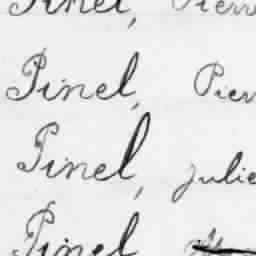 Pinel, Pierr
Pinel, Pierr
Pinel, Julie
Pinel